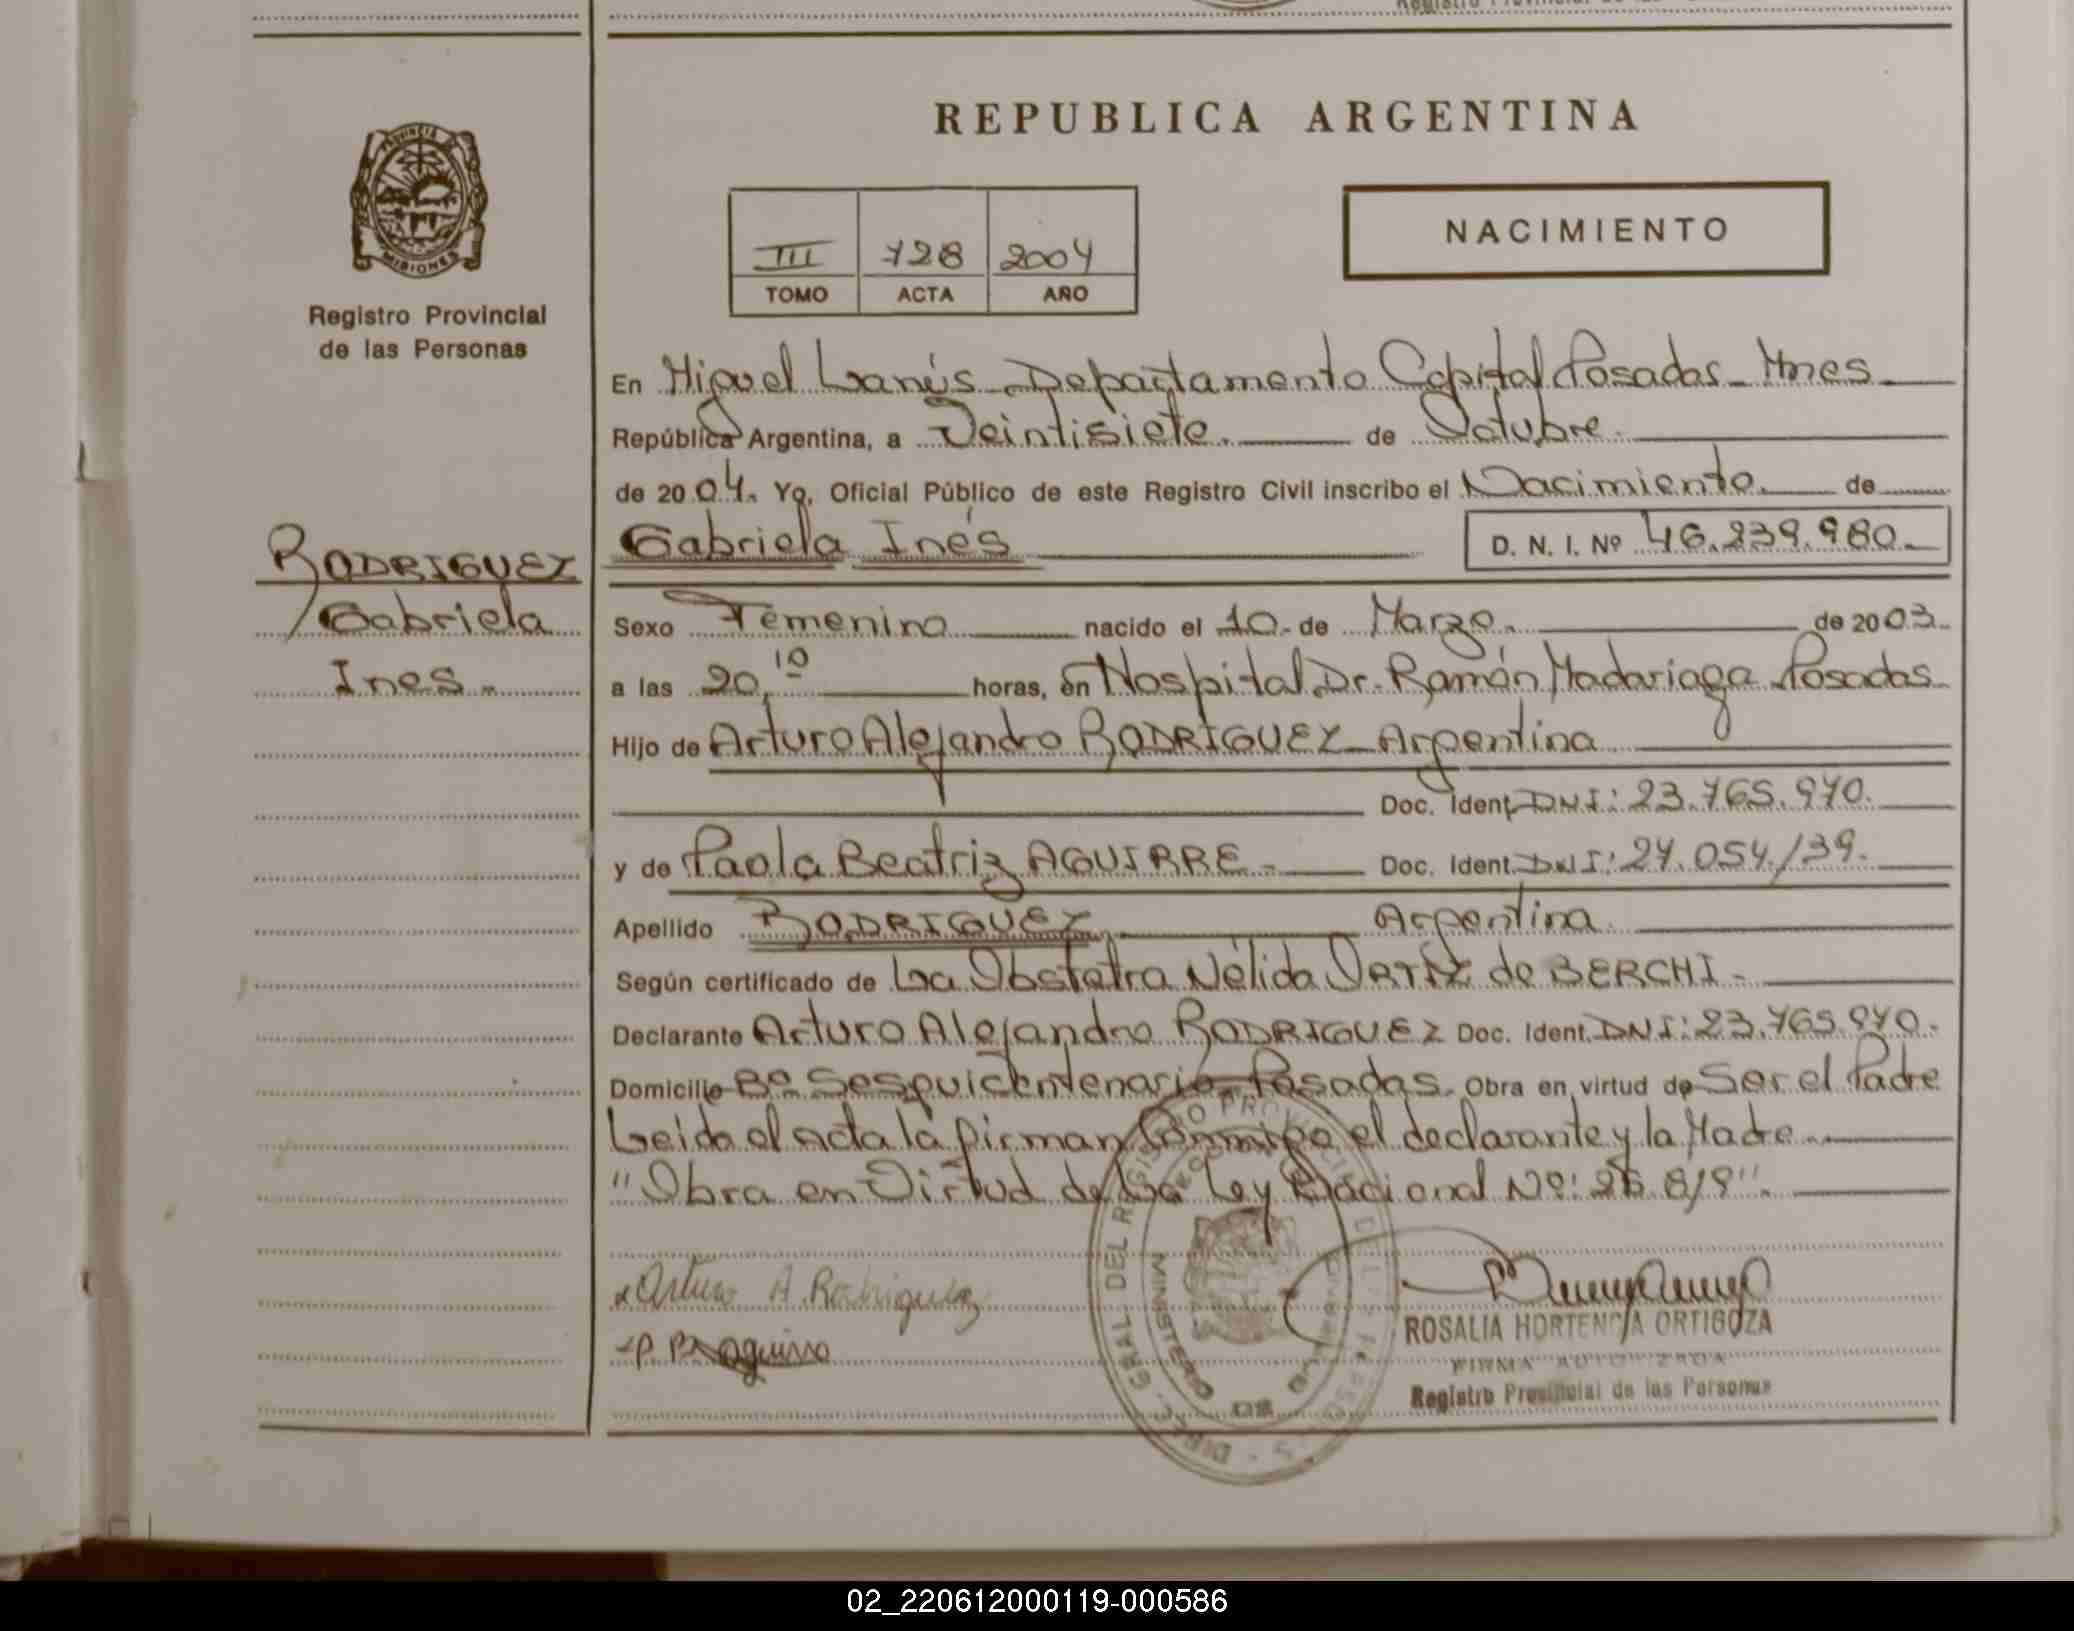 REPUBLICA ARGENTINA
PROVINCIA DE
MISIONES
Registro Provincial
de las Personas
III 728 2004
TOMO ACTA AÑO
NACIMIENTO
En Miguel Lanús Departamento Capital Posadas Mnes
República Argentina, a Veintisiete. de Octubre.
de 2004. Yo, Oficial Público de este Registro Civil inscribo el Nacimiento de
Gabriela Inés D. N. I. Nº 46.239.980.
RODRIGUEZ
Gabriela
Ines.
Sexo Femenino nacido el 10 de Marzo. de 2003.
a las 20,10 horas, en Hospital Dr. Ramón Madariaga Posadas
Hijo de Arturo Alejandro RODRIGUEZ Argentina
Doc. Ident. DNI: 23.765.970.
y de Paola Beatriz AGUIRRE Doc. Ident. DNI: 24.054.139.
Apellido RODRIGUEZ Argentina
Según certificado de La Obstetra Nélida ORTIZ de BERCHI
Declarante Arturo Alejandro RODRIGUEZ Doc. Ident. DNI: 23.765.970.
Domicilio Bº Sesquicentenario Posadas. Obra en virtud de Ser el Padre
Leida el acta la firman Conmigo el declarante y la Madre
"Obra en Virtud de La Ley Nacional Nº: 25.819".
Arturo A. Rodriguez
P. B. Aguirre
ROSALIA HORTENCIA ORTIGOZA
FIRMA AUTORIZADA
Registro Provincial de las Personas
02_220612000119-000586